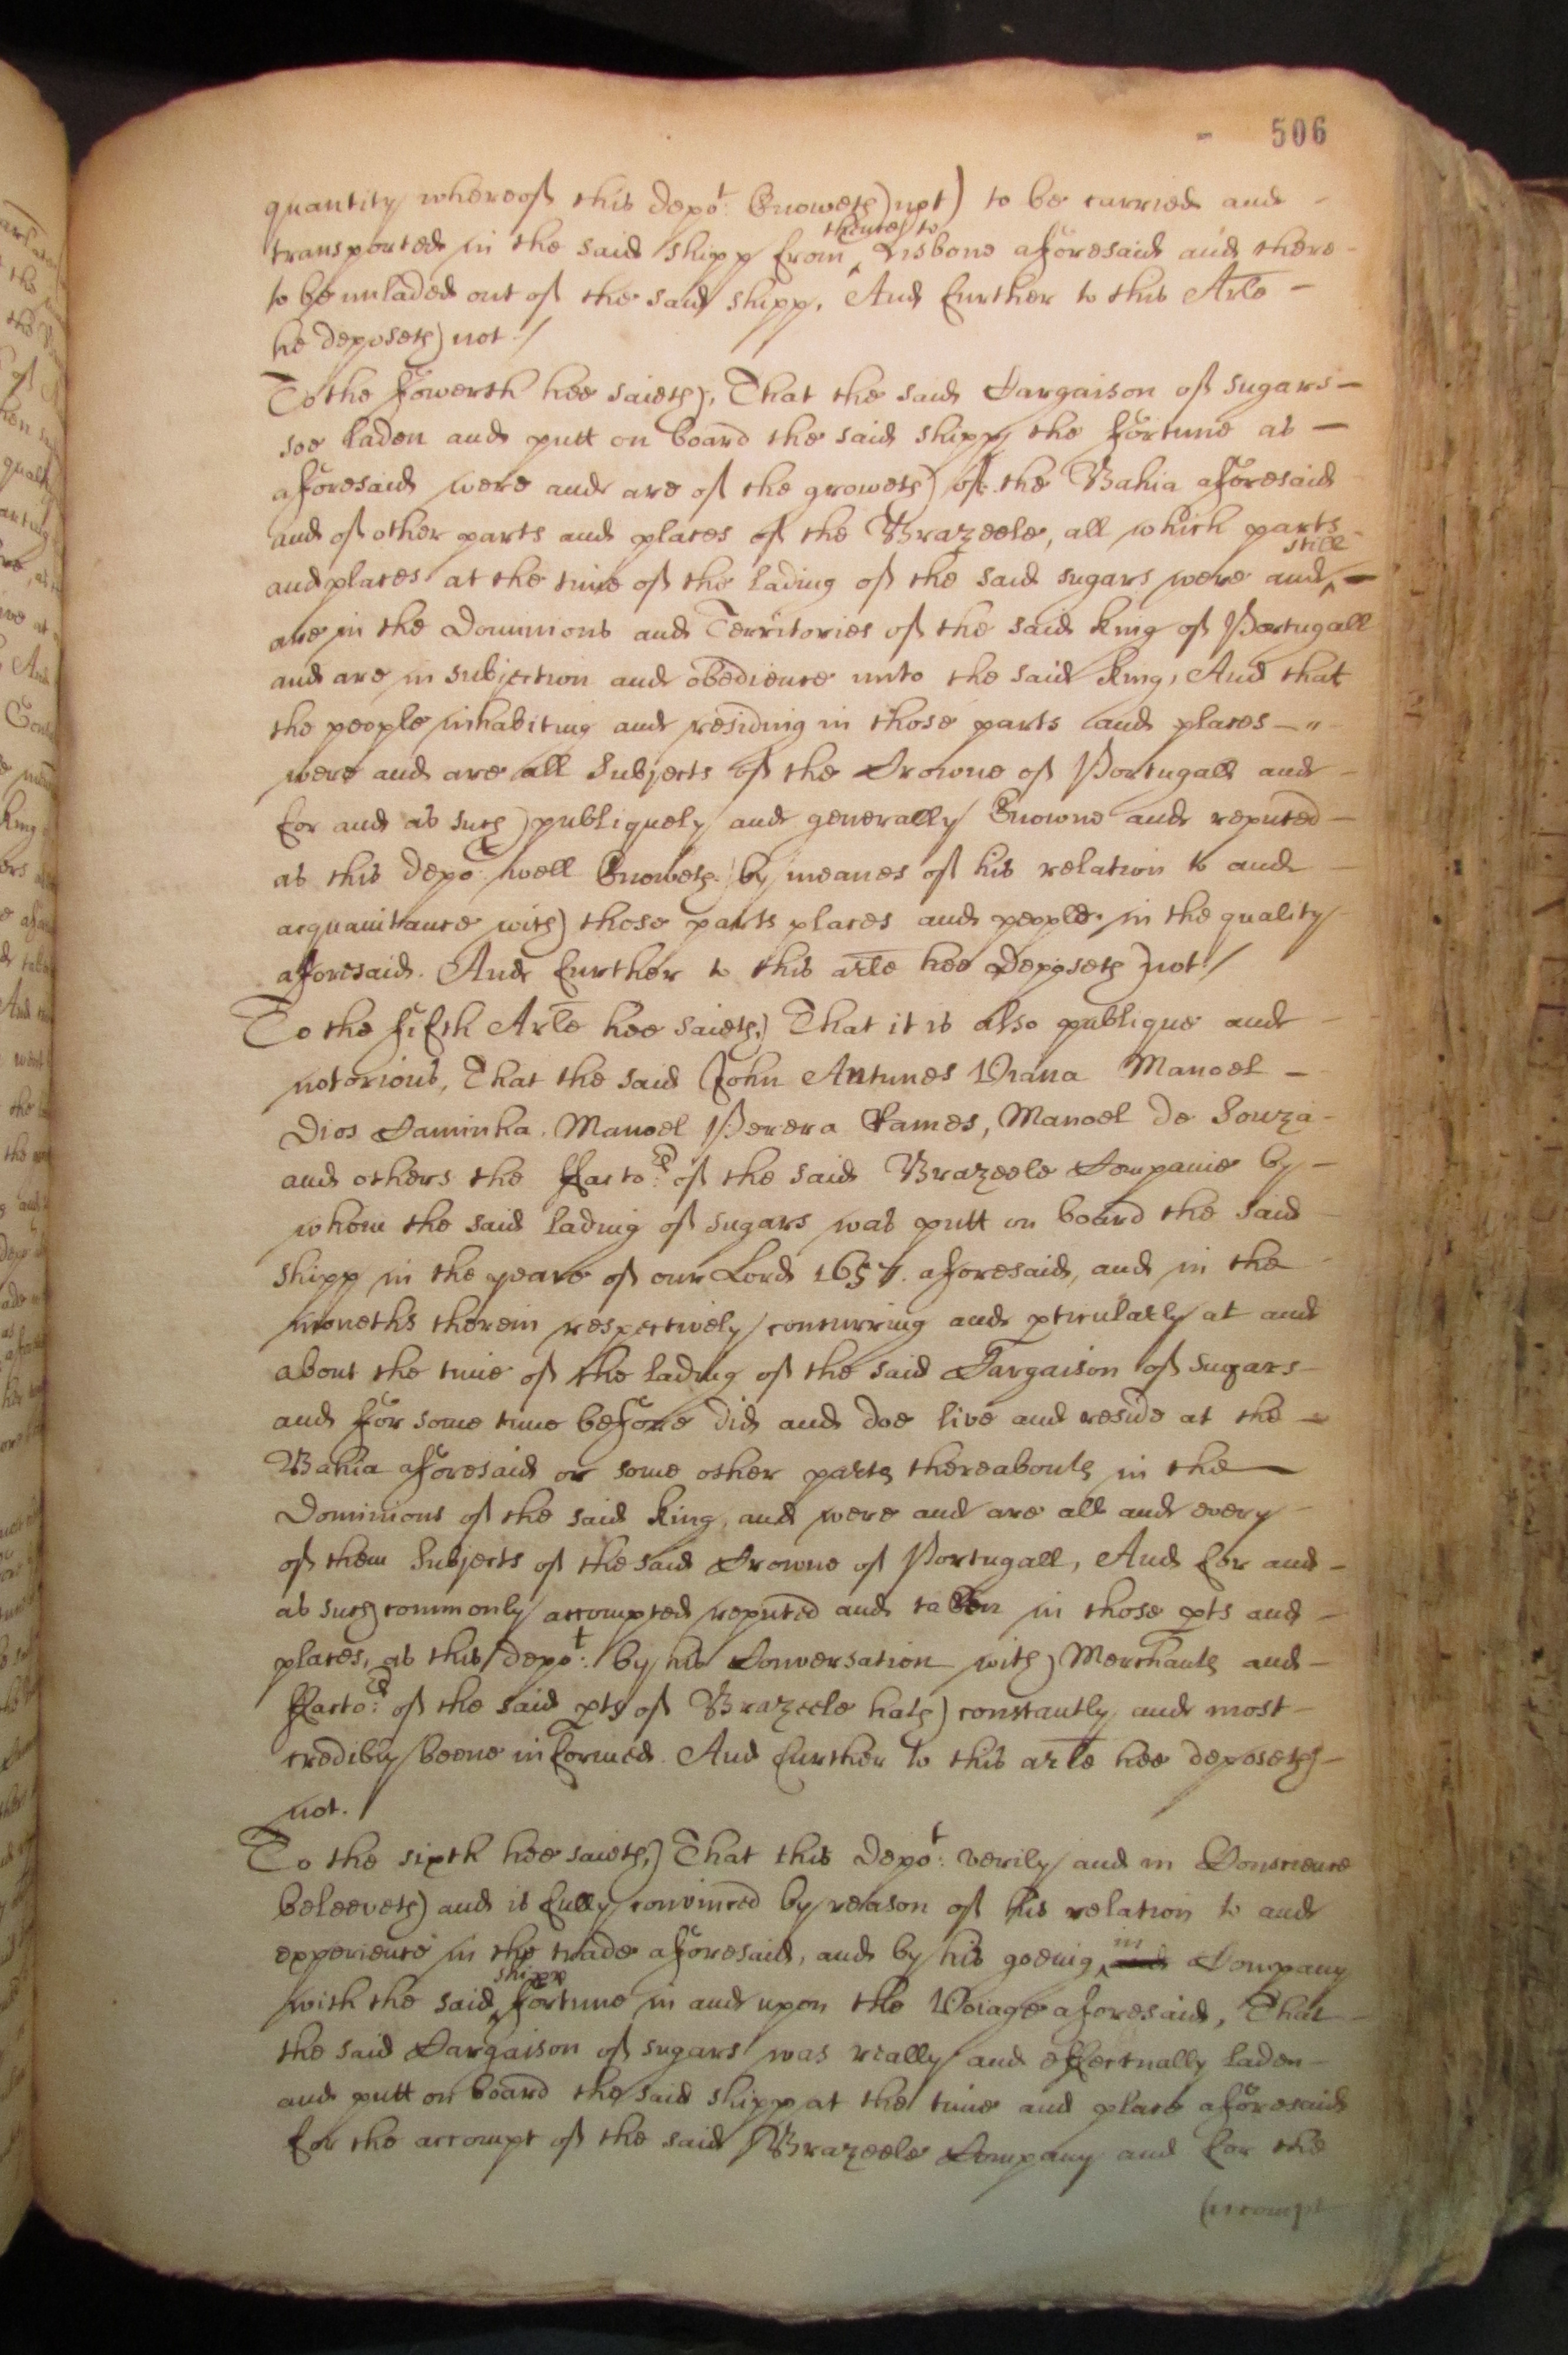 506
quantity whereof this depot: knoweth not) to be carried and
thence to
transported in the said shipp from Lisbone aforesaid and there
to be unladed out of the said shipp, And further to this Arle
he deposeth not /
To the fowerth hee saieth, That the said Cargaison of sugars
soe laden and putt on board the said shipp the fortune as
aforesaid were and are of the groweth of the Bahia aforesaid
and of other parts and places of the Brazeele, all which parts
still
and places at the time of the lading of the said sugars were and
are in the Dominions and Territories of the said king of Portugall
and are in subjection and obedience unto the said king, And that
the people inhabiting and residing in those parts and places
were and are all Subjects of the Crowne of Portugall and
for and as such publiquely and generally knowne and reputed
as this depot well knoweth by meanes of his relation to and
acquaintance with those parts places and people in the quality
aforesaid. And further to this arle hee deposeth not /
To the fifth Arle hee saieth, That it is also publique and
notorious, That the said John Antunes Viana Manoel
Dios Caminha, Manoel Perera Rames, Manoel de Souza
and others the ffactors: of the said Brazeele Companie by
whom the said lading of sugars was putt on board the said
shipp in the yeare of our Lord 1657. aforesaid, and in the
moneths therein respectively concurring and pticularly at and
about the time of the lading of the said Cargaison of sugars
and for some time before did and doe live and reside at the
Bahia aforesaid or some other parts thereabouts in the
Dominions of the said king, and were and are all and every
of them Subjects of the said Crowne of Portugall, And for and
as such commonly accompted reputed and taken in those pts and
places, as this depot: by his Conversation with Merchants and
ffactors: of the said pts of Brazeele hath constantly and most
credibly beene informed. And further to this arle hee deposeth
not.
To the sixth hee saieth, That this Depot: verily and in Conscience
beleeveth and is fully convinced by reason of his relation to and
in
experience in the trade aforesaid, and by his goeing and Company
shipp
with the said fortune in and upon the Voiage aforesaid, That
the said Cargaison of sugars was really and effectually laden
and putt on board the said shipp at the time and place aforesaid
for the accompt of the said Brazeele Company and for the
accompt